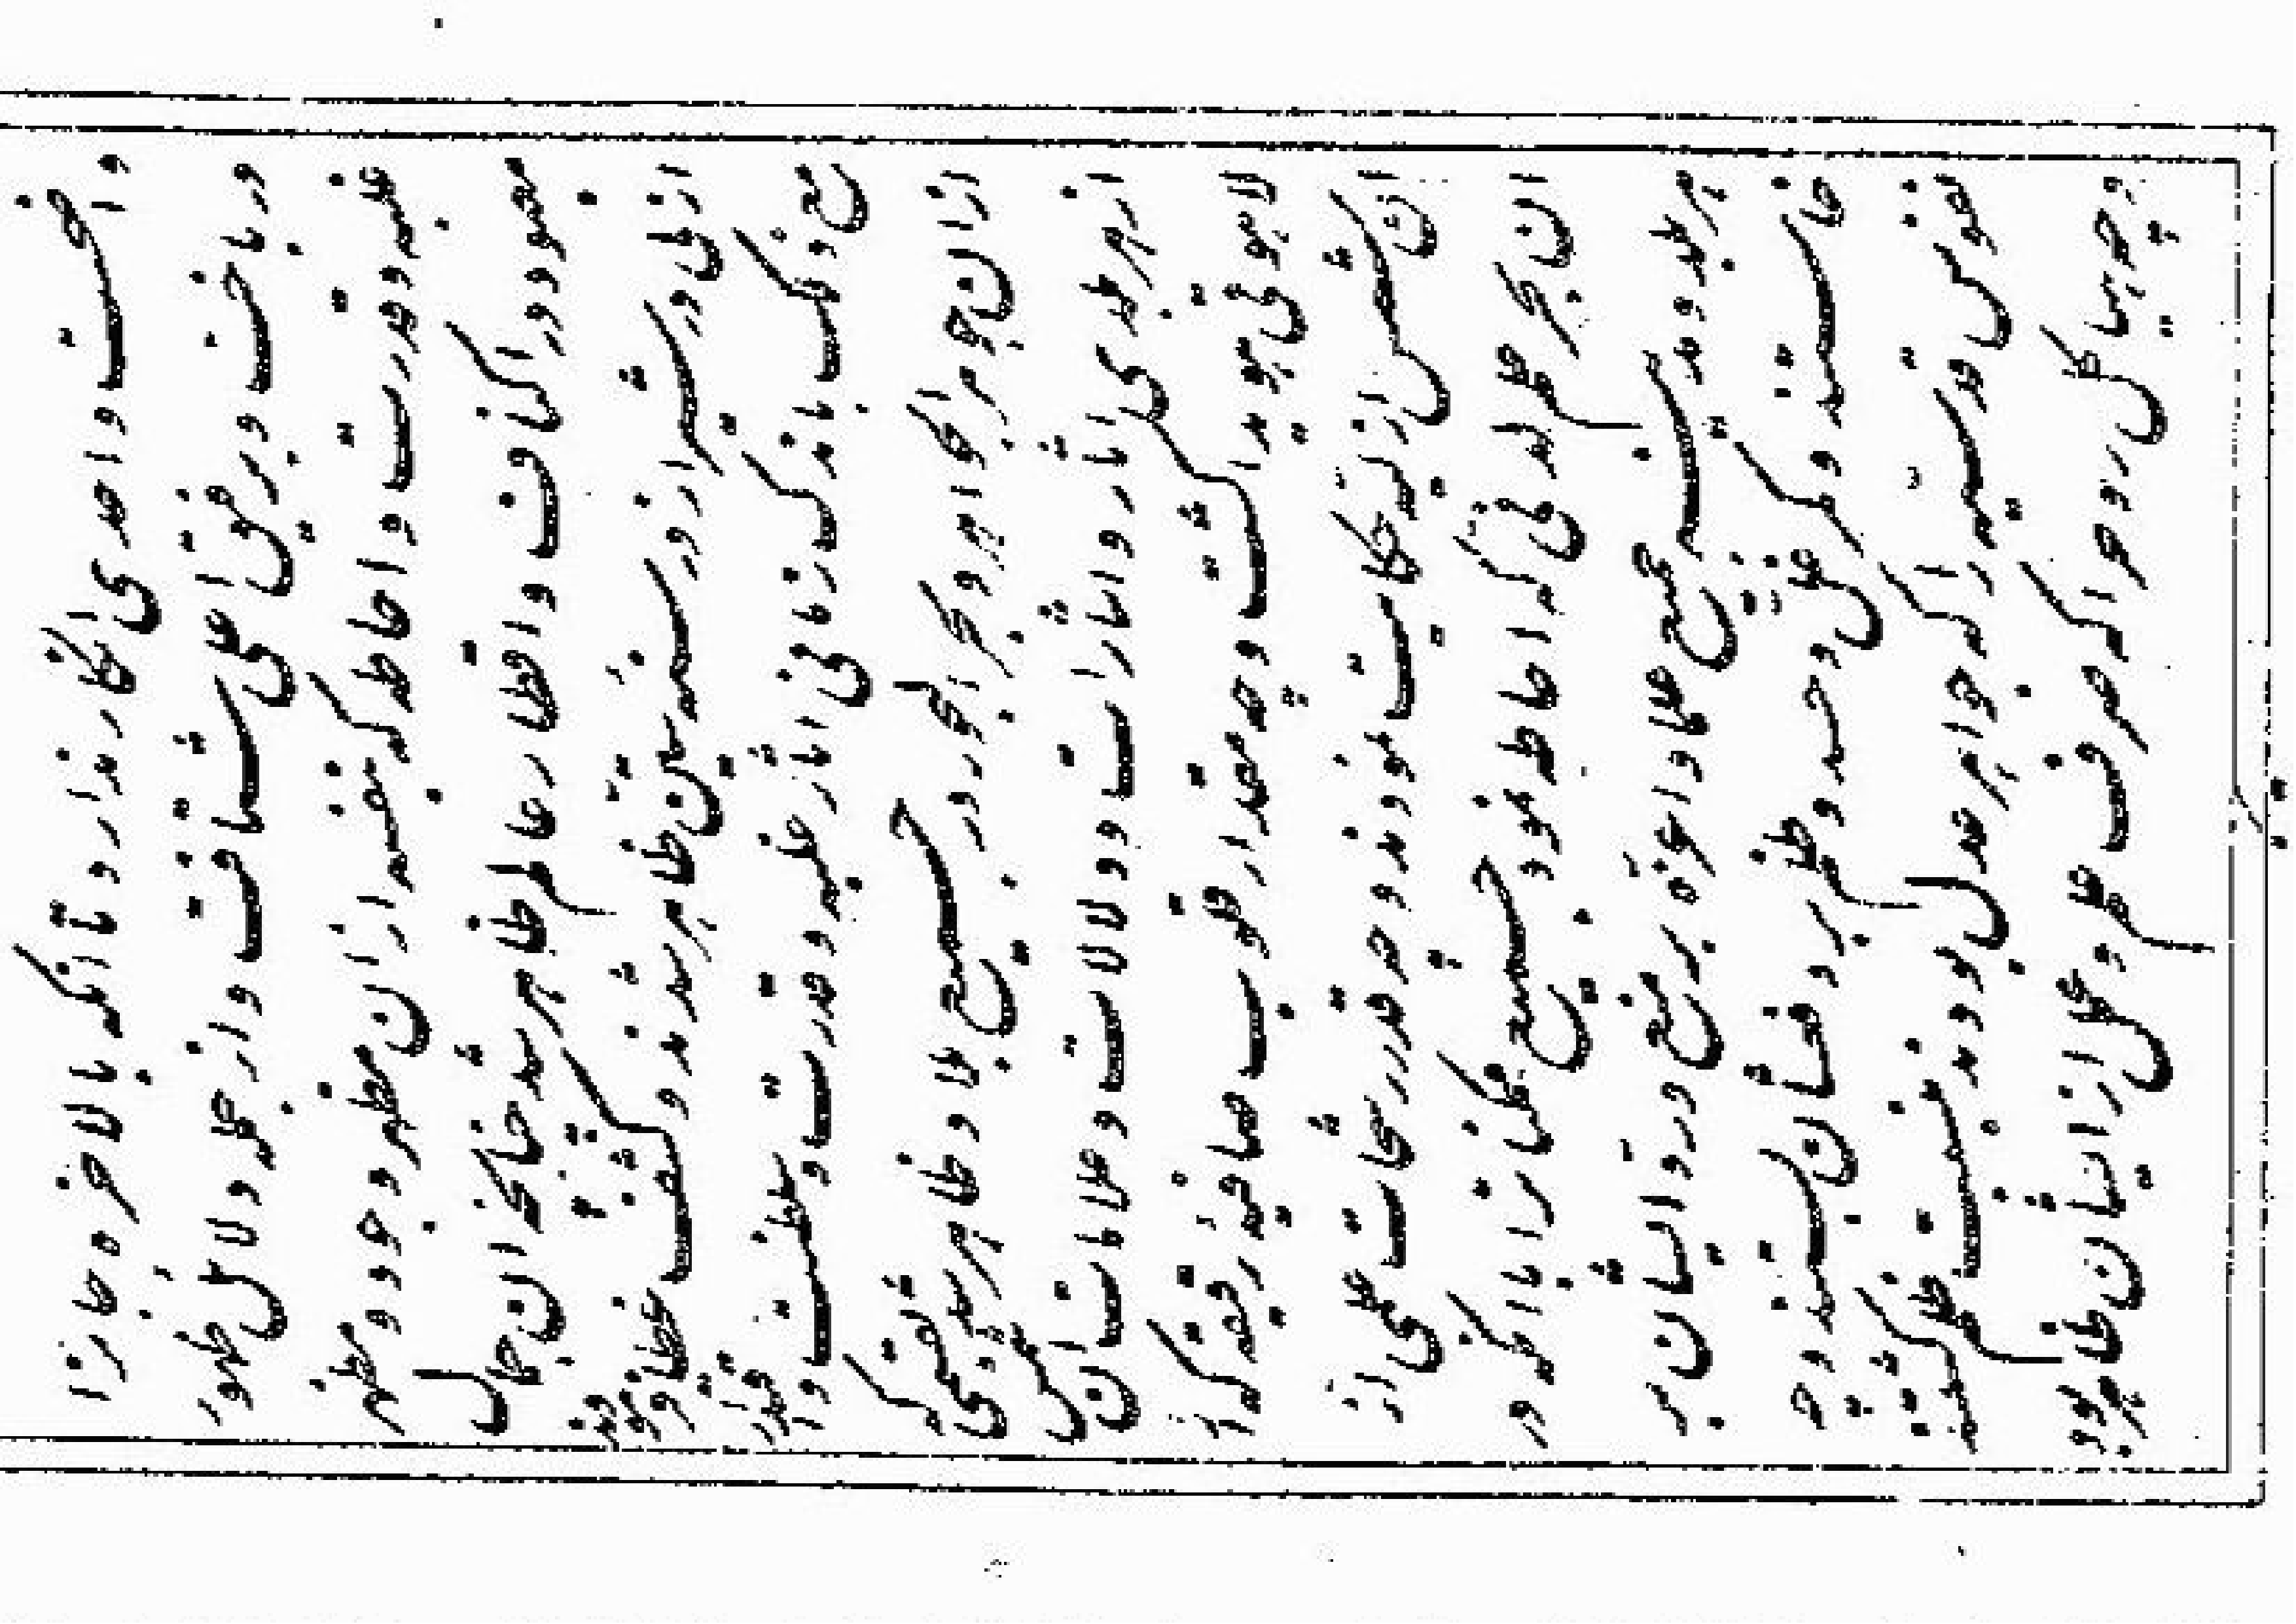 واحدی انکار ندارد تا آنکه بالاخره جانرا
در باخت و برفیق اعلی شتافت و از جمله دلائل ظهور
غلبه و قدرت و احاطه که بنفسه از آن مظهر وجود و مظهر
معبود در اکناف و اقطار عالم ظاهر شد چنانچه آن جمال
ازلی در شیراز در سنه ستین ظاهر شدند و کشف غطا فرمودند
مع ذلک باندک زمانی آثار غلبه و قدرت و سلطنت و اقتدار
از آن جوهر الجواهر و بحر البحور در جمیع بلاد ظاهر شد بقسمی که
از هر بلدی آثار و اشارات و دلالات و علامات آن شمس
لاهوتی هویدا گشت و چه مقدار قلوب صافیه رقیقه که از
آن شمس ازلیه حکایت نمودند و چه قدر رشحات علمی از
آن بحر علم لدنی که احاطه نمود جمیع ممکنات را با اینکه در
هر بلد و مدینه جمیع علما و اعزه بر منع و رد ایشان بر
خاستند و کمر غل و حسد و ظلم بر دفعشان بستند و چه
نفوس قدسیه را که جواهر عدل بودند بنسبت ظلم کشتند
و چه هیاکل روح را که صرف علم و عمل از ایشان ظاهر بود